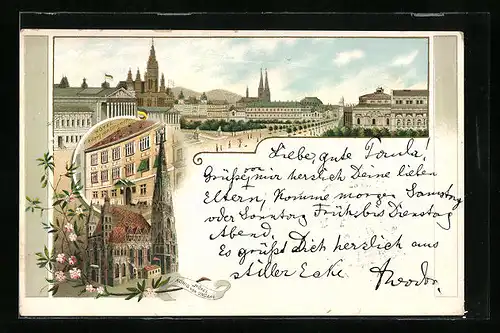 Liebe, gute Paula!
Grüße von mir herzlich Deine lieben
Eltern, Komme morgen Samstag
oder Sonntag Früh bis Dienstag
Abend.
Es grüßt Dich herzlich aus
stiller Ecke Theodor.